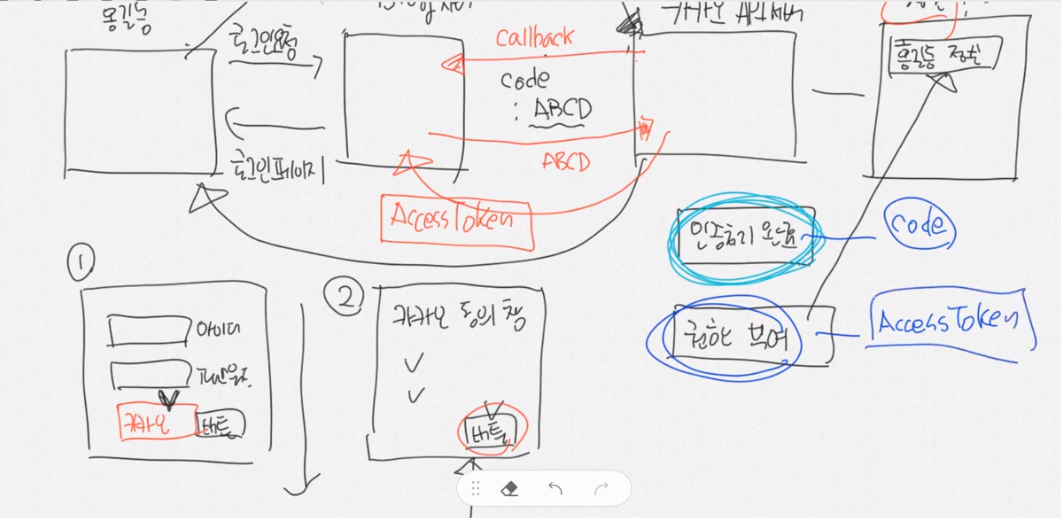 홍길동
로그인요청
로그인페이지
Callback
code
: ABCD
ABCD
AccessToken
카카오 API 서버
홍길동 정보
인증처리 완료
code
권한 부여
AccessToken
①
아이디
카카오
버튼
②
카카오 동의 창
버튼